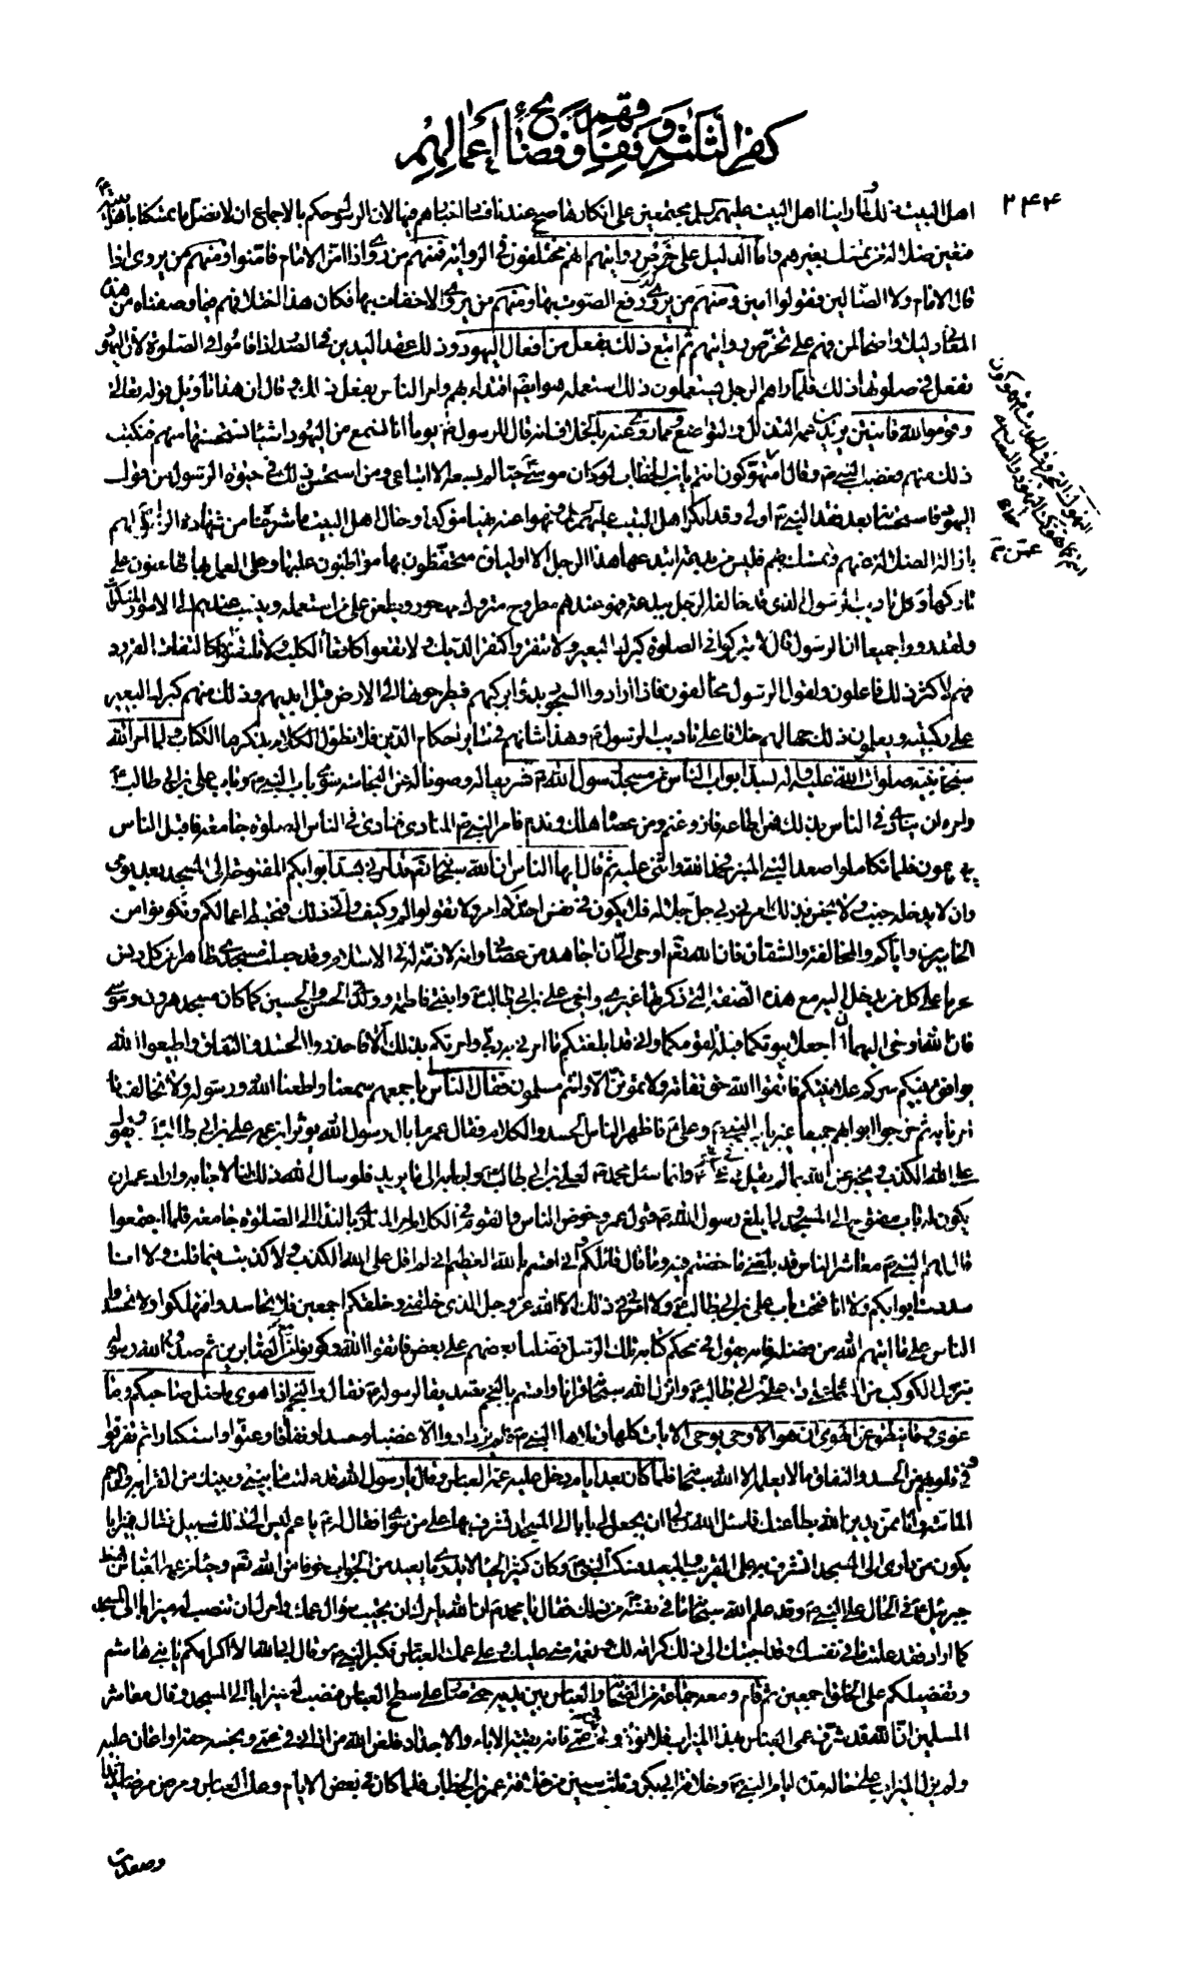 كفر الثلثة و نفاقهم و فضائح أعمالهم
٢٤٤
اهل البيت ذلك فلما راينا اهل البيت عليهم السلم مجتمعين على انكارها صح عندنا فيها لان الرسول حكم بالاجماع ان لا يضل ما تمسكنا باهل بيته
فتعين ضلالة من تمسك بغيرهم واما الدليل على تخرص روايتهم انهم مختلفون في الرواية فمنهم من روى اذا امن الامام فامنوا ومنهم من يروى اذا
قال الامام ولا الضالين فقولوا امين ومنهم من يروى رفع الصوت بها ومنهم من يروى الاخفات بها فكان هذا اختلافهم فيما وصفناه من هذا
المعنى دليلا واضحا لمن فهم على تخرص روايتهم ثم اتبع ذلك بفعل من افعال اليهود وذلك عقد اليدين في الصدر اذا قاموا في الصلوة لان اليهود
تفعل في صلوتها ذلك فلما راهم الرجل يستعملون ذلك استعمله هو ايضا اقتداء بهم وامر الناس بفعل ذلك وقال ان هذا تاويل قوله تعالى
وقوموا لله قانتين يريد بزعمه التذلل والتواضع ومما روى عنه بالخلاف انه قال للرسول ص يوما انا لنسمع من اليهود اشياء نستحسنها منهم فنكتب
ذلك منهم فغضب النبي ص وقال امتهوكون انتم يا بن الخطاب لو كان موسى حيا لم يسعه الا اتباعي ومن استحسن ذلك في حيوة الرسول من قول
اليهود فاستحسانه بعد فقد النبي ص اولى وقد انكر اهل البيت عليهم السلم ونهوا عنه نهيا مؤكدا وحال اهل البيت ما شرحنا من شهادة الرسول لهم
بازالة الضلالة عنهم وعمن تمسك بهم فليس من بدعة ابتدعها هذا الرجل الا اولياؤه متحفظون بها مواظبون عليها وعلى العمل بها طاعنون على
تاركها وكل تاديب الرسول الذي قد خالفه الرجل ببدعة فهو عندهم مطروح متروك مهجور ويطعن على من استعمله وينسب عندهم الى الامور المنكرات
ولقد رووا جميعا ان الرسول قال لا تبركوا في الصلوة كبرك البعير ولا تنقروا كنقر الديك ولا تقعوا كاقعاء الكلب ولا تلتفتوا كالتفات القرود
فهم لاكثر ذلك فاعلون ولقول الرسول مخالفون فاذا ارادوا السجود بدؤا بركبهم فيطرحونها الى الارض قبل ايديهم وذلك منهم كبرك البعير
على ركبتيه ويعلمون ذلك جهالهم خلافا على تاديب الرسول ص وهذا شانهم في سائر احكام الدين فلا نطول الكلام بذكرها الكتاب ولما امر الله
سبحانه نبيه صلوات الله عليه واله بسد ابواب الناس من مسجد رسول الله ص تشريفا له وصونا له عن النجاسة سوى باب النبي ص وباب علي بن ابي طالب ع
وامره ان ينادي في الناس بذلك فمن اطاعه فاز وغنم ومن عصاه هلك وندم فامر النبي ص المنادي فنادى في الناس الصلوة جامعة فاقبل الناس
يهرعون فلما تكاملوا صعد النبي المنبر فحمد الله واثنى عليه ثم قال ايها الناس ان الله سبحانه تعم قد امرني بسد ابوابكم المفتوحة الى المسجد بعد يومي
وان لا يدخله جنب ولا نجس بذلك امرني ربي جل جلاله فلا يكون في نفس احد منكم امر ولا تقولوا لم وكيف وانى ذلك فتحبط اعمالكم وتكونوا من
الخاسرين واياكم والمخالفة والشقاق فان الله تعم اوحى الى ان اجاهد من عصاني وانه لا ذمة له في الاسلام وقد جعلت مسجدي طاهرا من كل دنس
محرما على كل من يدخل اليه مع هذه الصفة التي ذكرتها غيري واخي علي بن ابي طالب ع وابنتي فاطمة وولدي الحسن والحسين كما كان مسجد هرون وموسى
فان الله اوحى اليهما ان اجعلا بيوتكما قبلة لقومكما واني قد ابلغتكم ما امرني به ربي وامرتكم بذلك الا فاحذروا الحسد والنفاق واطيعوا الله
يوافق بينكم سركم علانيتكم فاتقوا الله حق تقاته ولا تموتن الا وانتم مسلمون فقال الناس باجمعهم سمعنا واطعنا الله ورسوله ولا نخالف ما
امرنا به ثم خرجوا ابوابهم جميعا غير باب النبي ص وعلي ع فاظهر الناس الحسد والكلام فقال عمر ما بال رسول الله يؤثر ابن عمه علي بن ابي طالب ع ويقول
على الله الكذب ويخبر عن الله بما لم يقل في علي ع وانما سئل محمد ص لعلي بن ابي طالب ع واجابه الى ما يريد فلو سال الله ذلك لنا لاجابه واراد عمر ان
يكون له باب مفتوح الى المسجد ولما بلغ رسول الله ص قول عمر وخوض الناس والقوم في الكلام امر المنادي بالنداء الى الصلوة جامعة فلما اجتمعوا
قال لهم النبي ص معاشر الناس قد بلغني ما خضتم فيه وما قال قائلكم واني اقسم بالله العظيم اني لم اقل على الله الكذب ولا كذبت فيما قلت ولا انا
سددت ابوابكم ولا انا فتحت باب علي بن ابي طالب ع ولا امرني في ذلك الا الله عز وجل الذي خلقني وخلقكم اجمعين فلا تحاسدوا فتهلكوا ولا تحسدوا
الناس على ما اتيهم الله من فضله فانه يقول في محكم كتابه تلك الرسل فضلنا بعضهم على بعض فاتقوا الله وكونوا من الصابرين ثم صدق الله ورسوله
بنزول الكوكب من السماء على علي بن ابي طالب ع وانزل الله سبحانه قرانا واقسم بالنجم تصديقا لرسوله ص فقال والنجم اذا هوى ما ضل صاحبكم وما
غوى وما ينطق عن الهوى ان هو الا وحي يوحى الايات كلها وتلاها النبي ص فلم يزدادوا الا غضبا وحسدا ونفاقا وعتوا واستكبارا ثم تفرقوا
وفي قلوبهم من الحسد والنفاق ما لا يعلمه الا الله سبحانه فلما كان بعد ايام دخل عليه عمه العباس وقال يا رسول الله قد علمت ما بيني وبينك من القرابة والرحم
الماسة وانا ممن يدين الله بطاعتك فاسئل الله ان يجعل لي بابا الى المسجد اتشرف بها على من سواي فقال له ص يا عم ليس الى ذلك سبيل فقال فميزابا
يكون من داري الى المسجد اتشرف به على القريب والبعيد فسكت النبي ص وكان كثير الحياء لا يدري ما يعيد من الجواب خوفا من الله تعم وحياء من عمه العباس فهبط
جبرئيل ع في الحال على النبي ص وقد علم الله سبحانه ما في نفسه من ذلك فقال يا محمد ص ان الله يامرك ان تجيب سؤال عمك وامرك ان تنصب له ميزابا الى المسجد
كما اراد فقد علمت ما في نفسك وقد اجبتك الى ذلك كرامة لك ونعمة مني عليك وعلى عمك العباس فكبر النبي ص وقال ابى الله الا اكرامكم يا بني هاشم
وتفضيلكم على الخلق اجمعين ثم قام ومعه جماعة من الصحابة والعباس بين يديه حتى صار على سطح العباس فنصب له ميزابا الى المسجد وقال معاشر
المسلمين ان الله قد شرف عمي العباس بهذا الميزاب فلا تؤذوني في عمي فانه بقية الاباء والاجداد فلعن الله من اذاني في عمي وبخسه حقه او اعان عليه
ولم يزل الميزاب على حاله مدة ايام النبي ص وخلافة ابي بكر وثلث سنين من خلافة عمر بن الخطاب فلما كان في بعض الايام وعك العباس ومرض مرضا شديدا
وصعدت